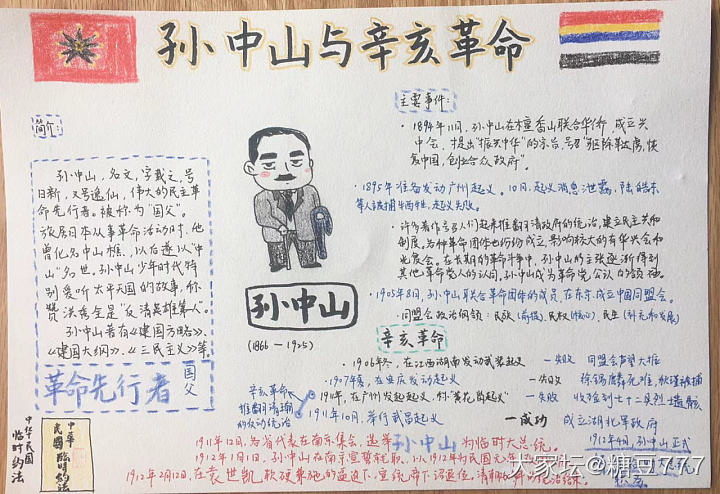 孙中山与辛亥革命
简介:
孙中山，名文，字载之，号
日新，又号逸仙，伟大的民主革
命先行者。被称为"国父"。
旅居日本从事革命活动时，他
曾化名中山樵，以后遂以"中
山"名世。孙中山少年时代特
别爱听太平天国的故事，称
赞洪秀全是"反清英雄第一人"。
孙中山著有《建国方略》、
《建国大纲》、《三民主义》等。
革命先行者
国父
孙中山
(1866-1925)
主要事件:
·1894年11月，孙中山在檀香山联合华侨，成立兴
中会，提出"振兴中华"的宗旨，号召"驱除鞑虏，恢
复中国，创立合众政府"。
·1895年准备发动广州起义。10月，起义消息泄露，陆皓东
等人被捕牺牲，起义失败。
起来推翻清政府的统治，建立民主共和
制度。各种革命团体也纷纷成立，影响较大的有华兴会和
光复会。在长期的革命斗争中，孙中山的主张逐渐得到
其他革命党人的认同，孙中山成为革命党公认的领袖。
·1905年8月，孙中山联合革命团体的成员，在东京成立中国同盟会。
·同盟会政治纲领:民族(前提)，民权(核心)，民生(补充和发展)
辛亥革命
·1906年冬，在江西湖南发动武装起义 —失败 同盟会声望大振
·1907年夏，在安庆发动起义 —失败 徐锡麟死难，秋瑾被捕
年，在广州发起起义，叫"黄花岗起义" —失败 收殓到七十二烈士遗骸
·1911年10月，举行武昌起义 —成功 成立湖北军政府
辛亥革命
推翻清朝
的反动统治
中华民国
临时约法
中华
民国临时约法
1911年12月，各省代表在南京集会，选举孙中山为临时大总统。
1912年1月1日，孙中山在南京宣誓就职，以1912年为民国元年
1912年2月12日，在袁世凯软硬兼施的逼迫下，宣统帝下诏退位，清朝
1912年4月，孙中山正式
大家坛@糖豆777